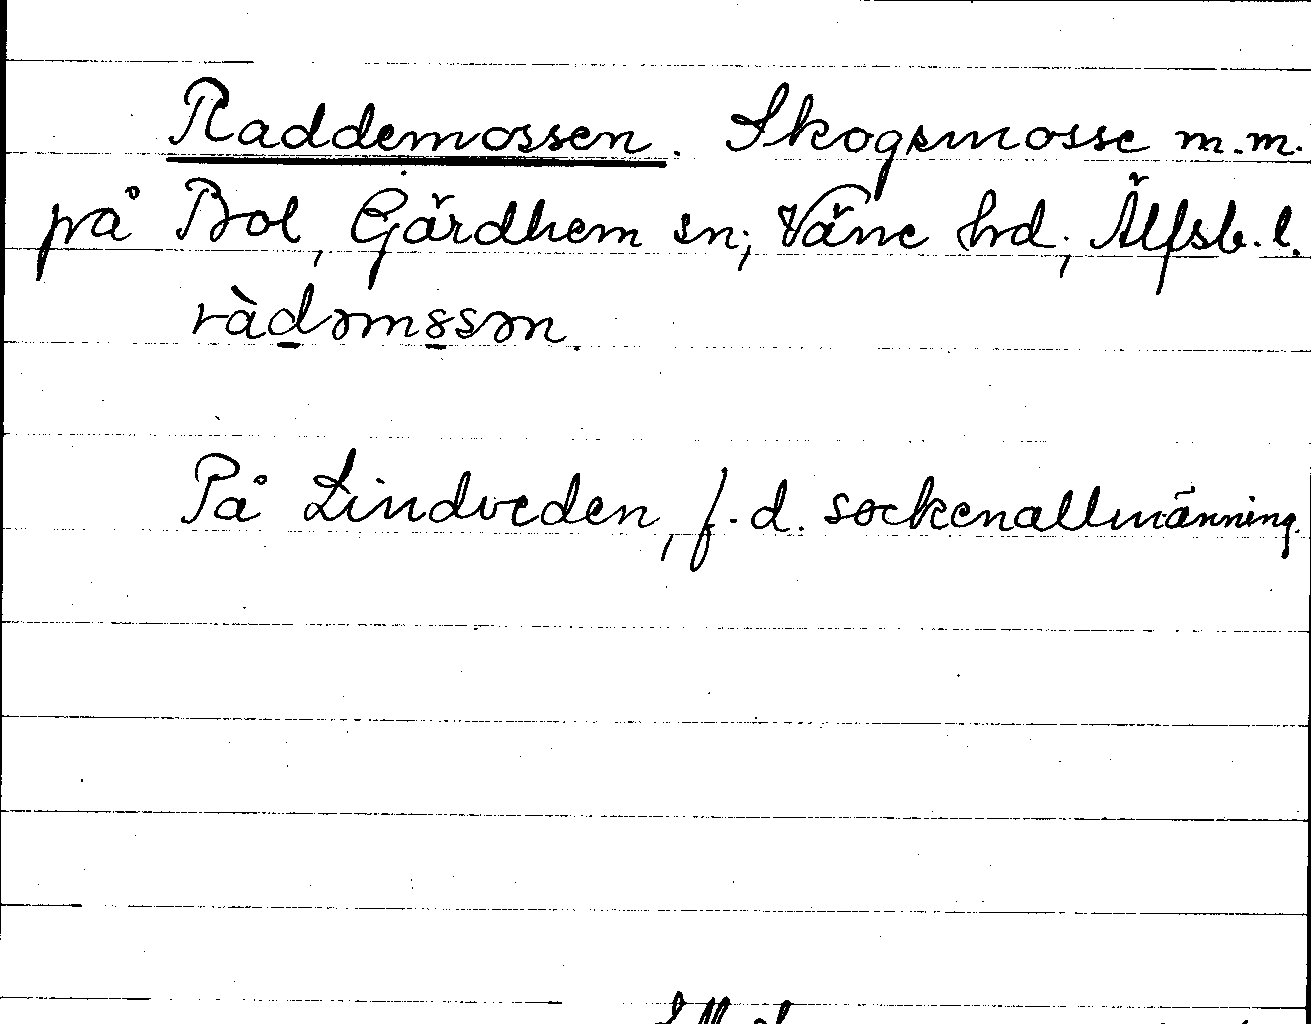 Raddemossen. Skogsmosse m.m.
på Bol, Gärdhem sn; Väne hd; Älfsb. l.
ràdəmssən.
På Lindveden, f.d. sockenallmänning.